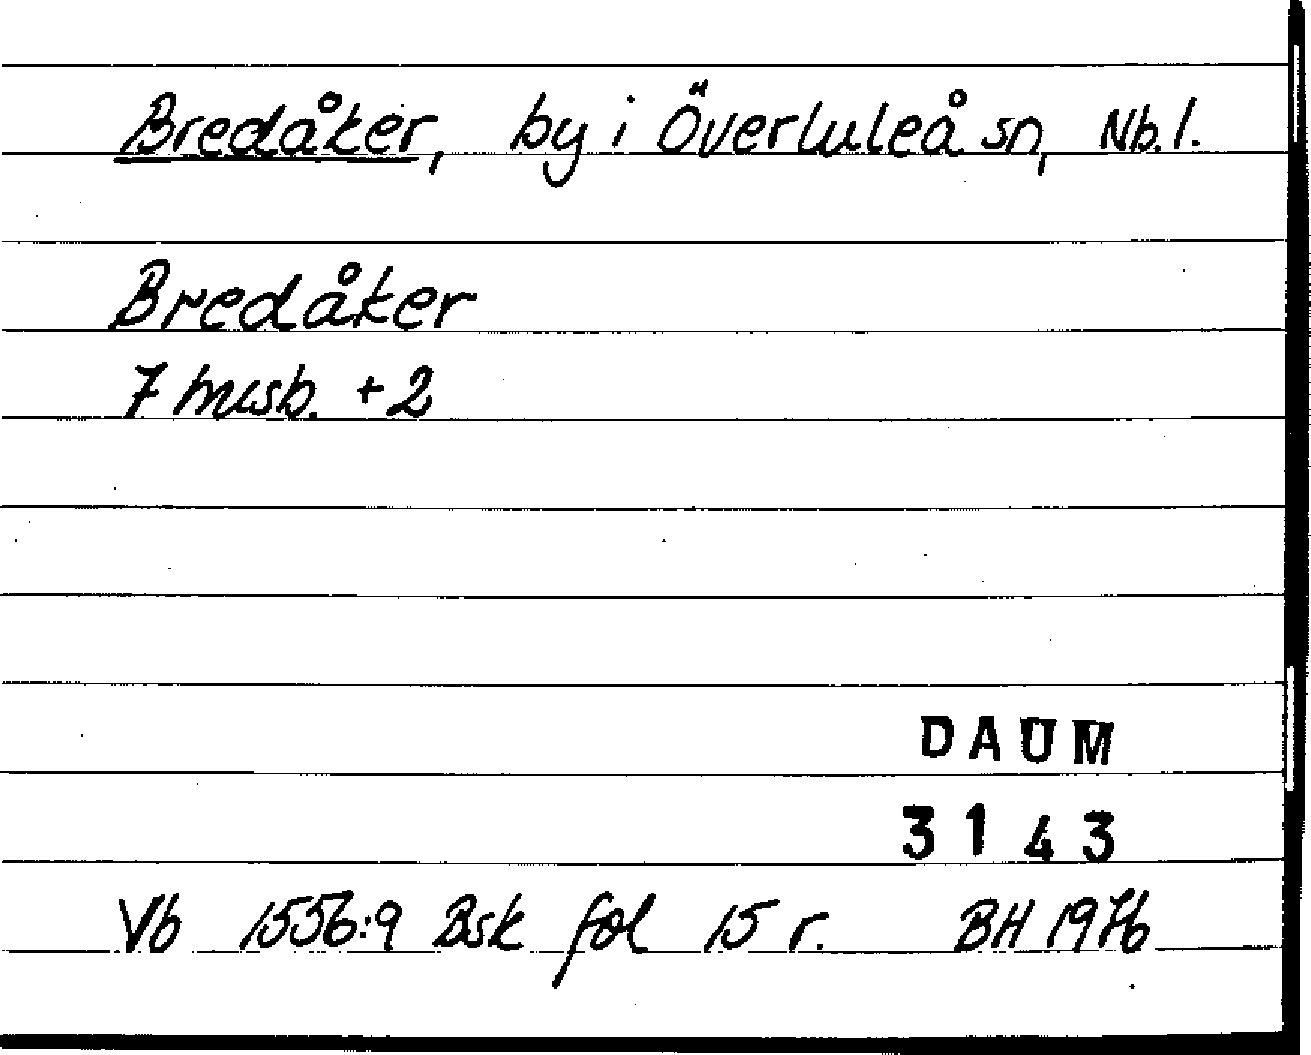 Bredåker, by i Överluleå sn, Nb.l.
Bredåker
7 mɩsb. +2
DAUM
3143
Vb 1556:9 Bsk fol 15 r. BH 1976